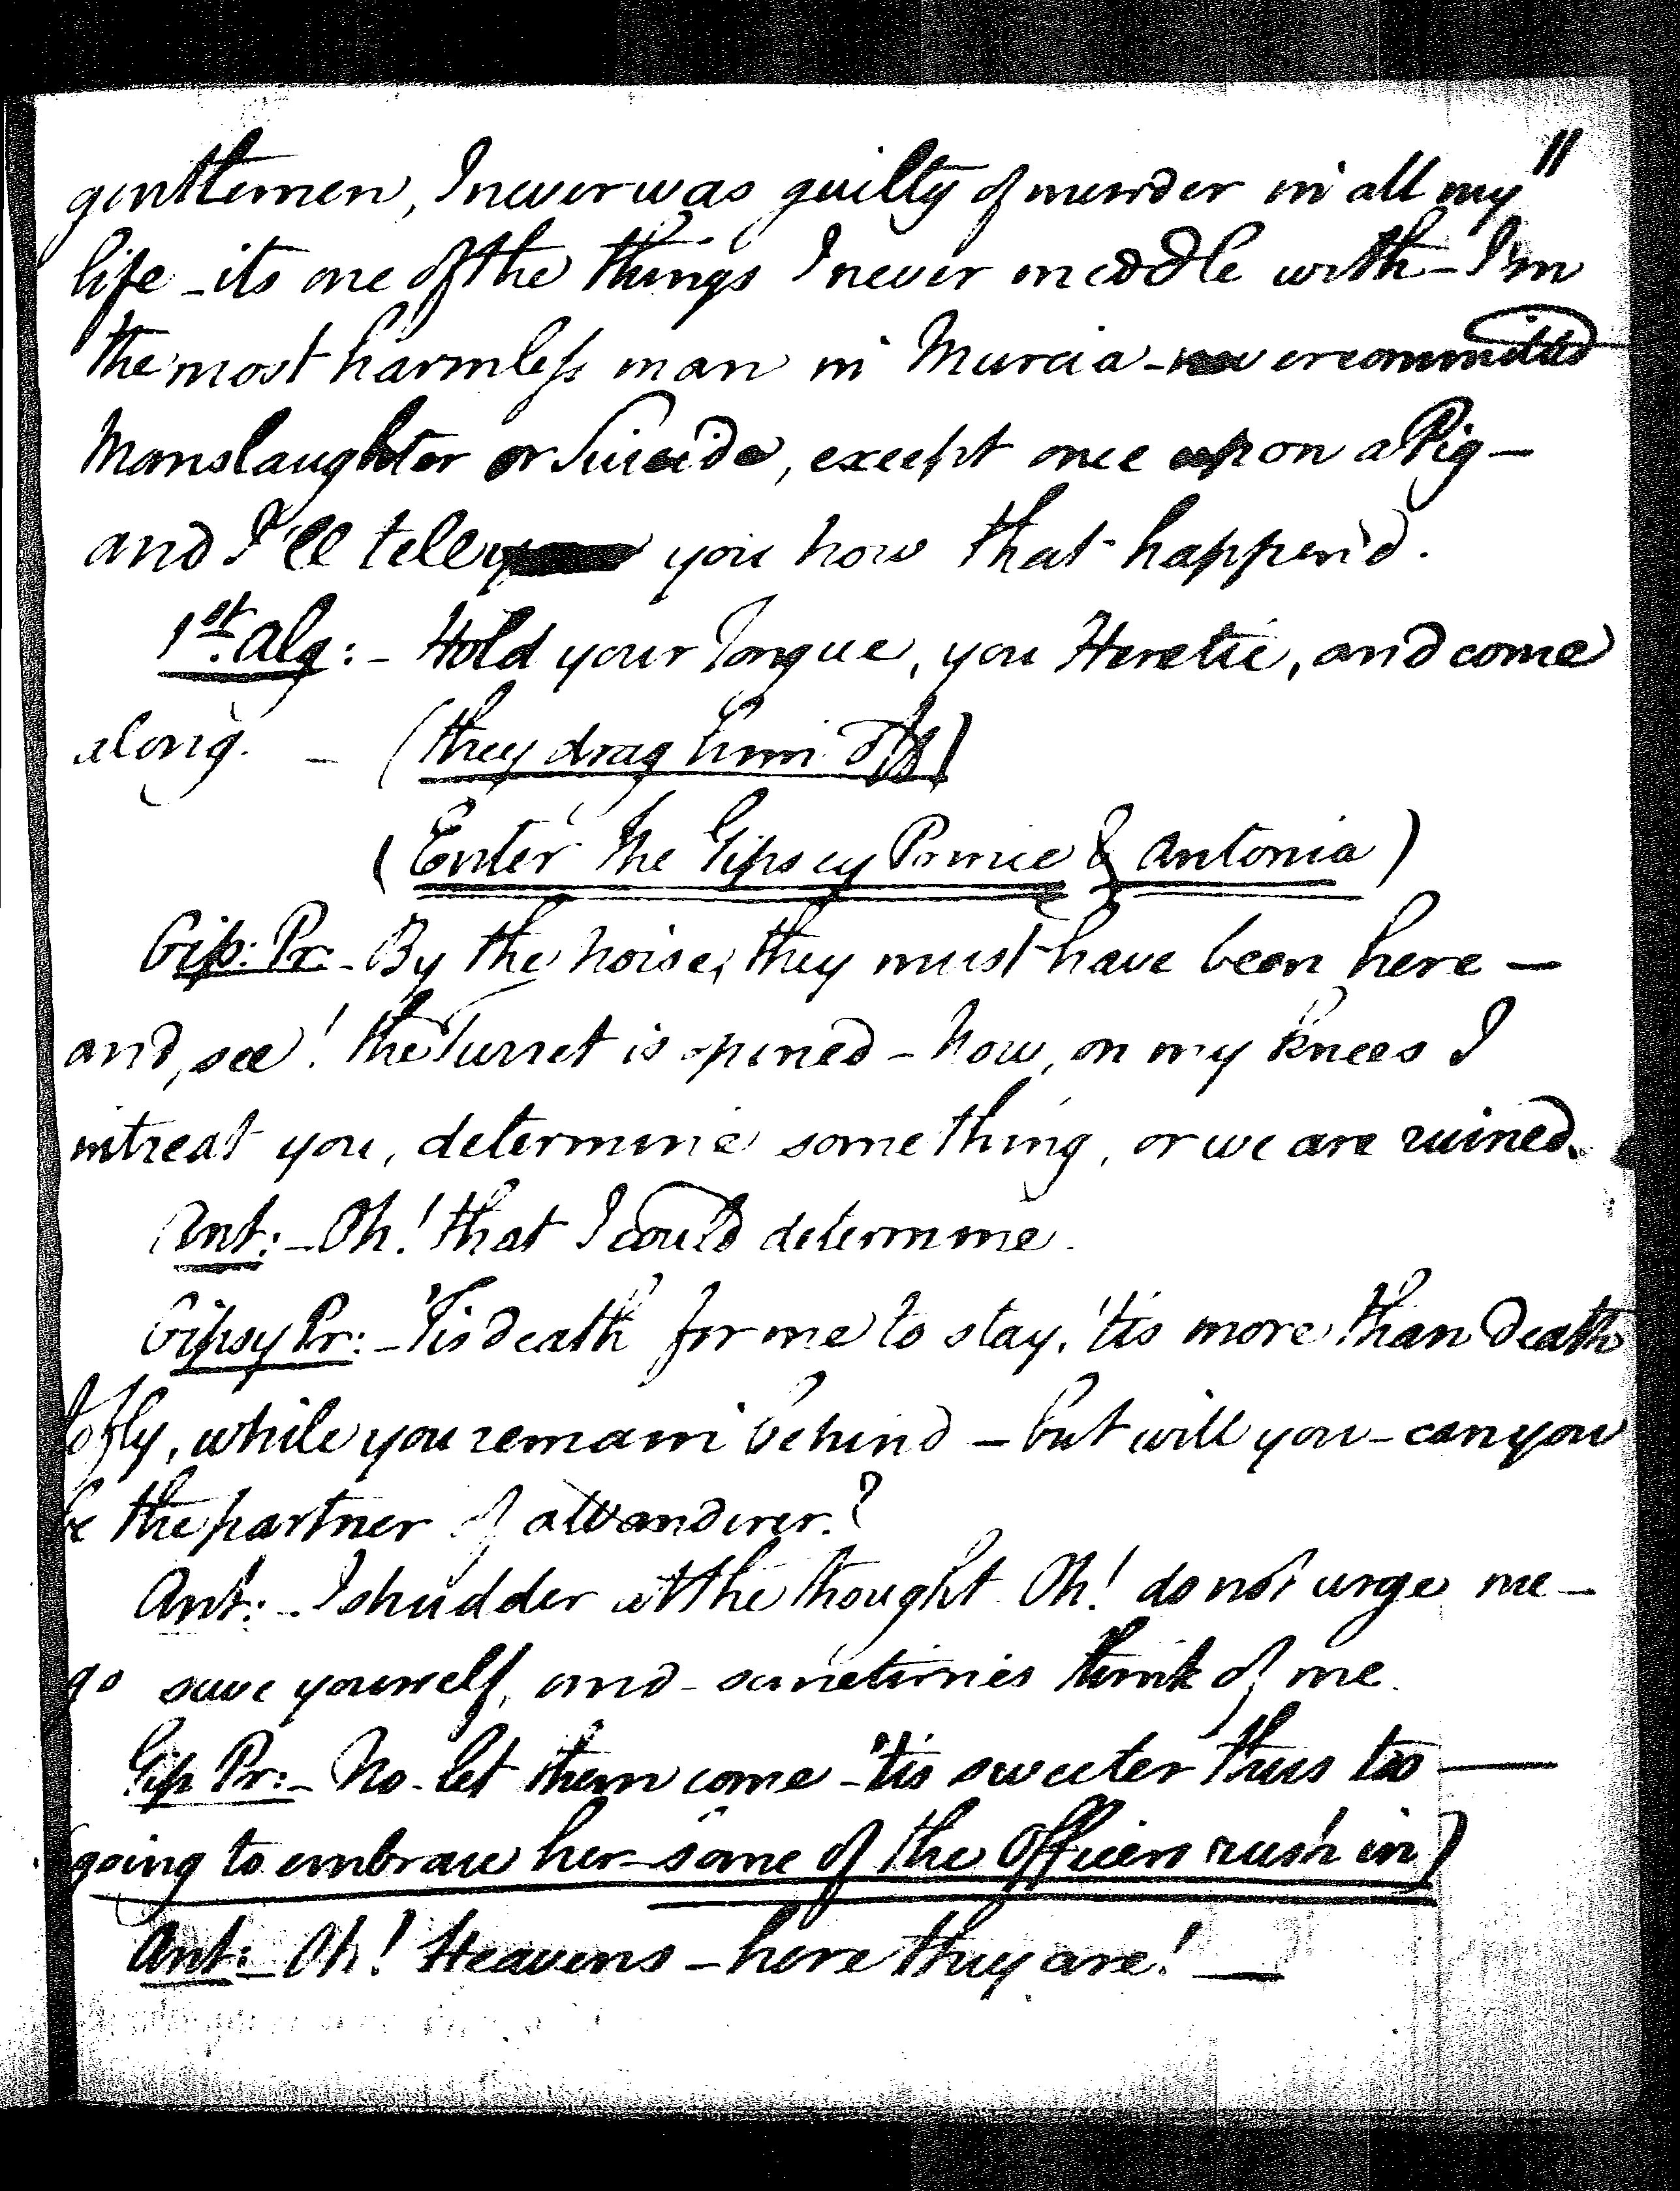 11
gentlemen, I never was guilty of murder in all my
life - its one of the things I never meddle with - I'm
the most harmless man in Murcia - never committed
Manslaughter or Suicide, except once upon a Pig -
and I'll tell you how that happen'd.
1st. Alg: - Hold your Tongue, you Heretic, and come
along. - (they drag him off)
(Enter the Gipsey Prince & Antonia)
Gip: Pr: - By the Noise, they must have been here -
and, see! the Turret is opened - Now, on my knees I
intreat you, determine something, or we are ruined.
Ant: - Oh! that I could determine.
Gipsy Pr: - 'Tis death for me to stay, 'tis more than Death
to fly, while you remain behind - but will you - can you
be the partner of a Wanderer?
Ant: - I shudder at the thought. Oh! do not urge me -
go save yourself, and - sometimes think of me.
Gip Pr: - No - let them come - 'tis sweeter thus to -
(going to embrace her - some of the Officers rush in)
Ant: - Oh! Heavens - here they are! -